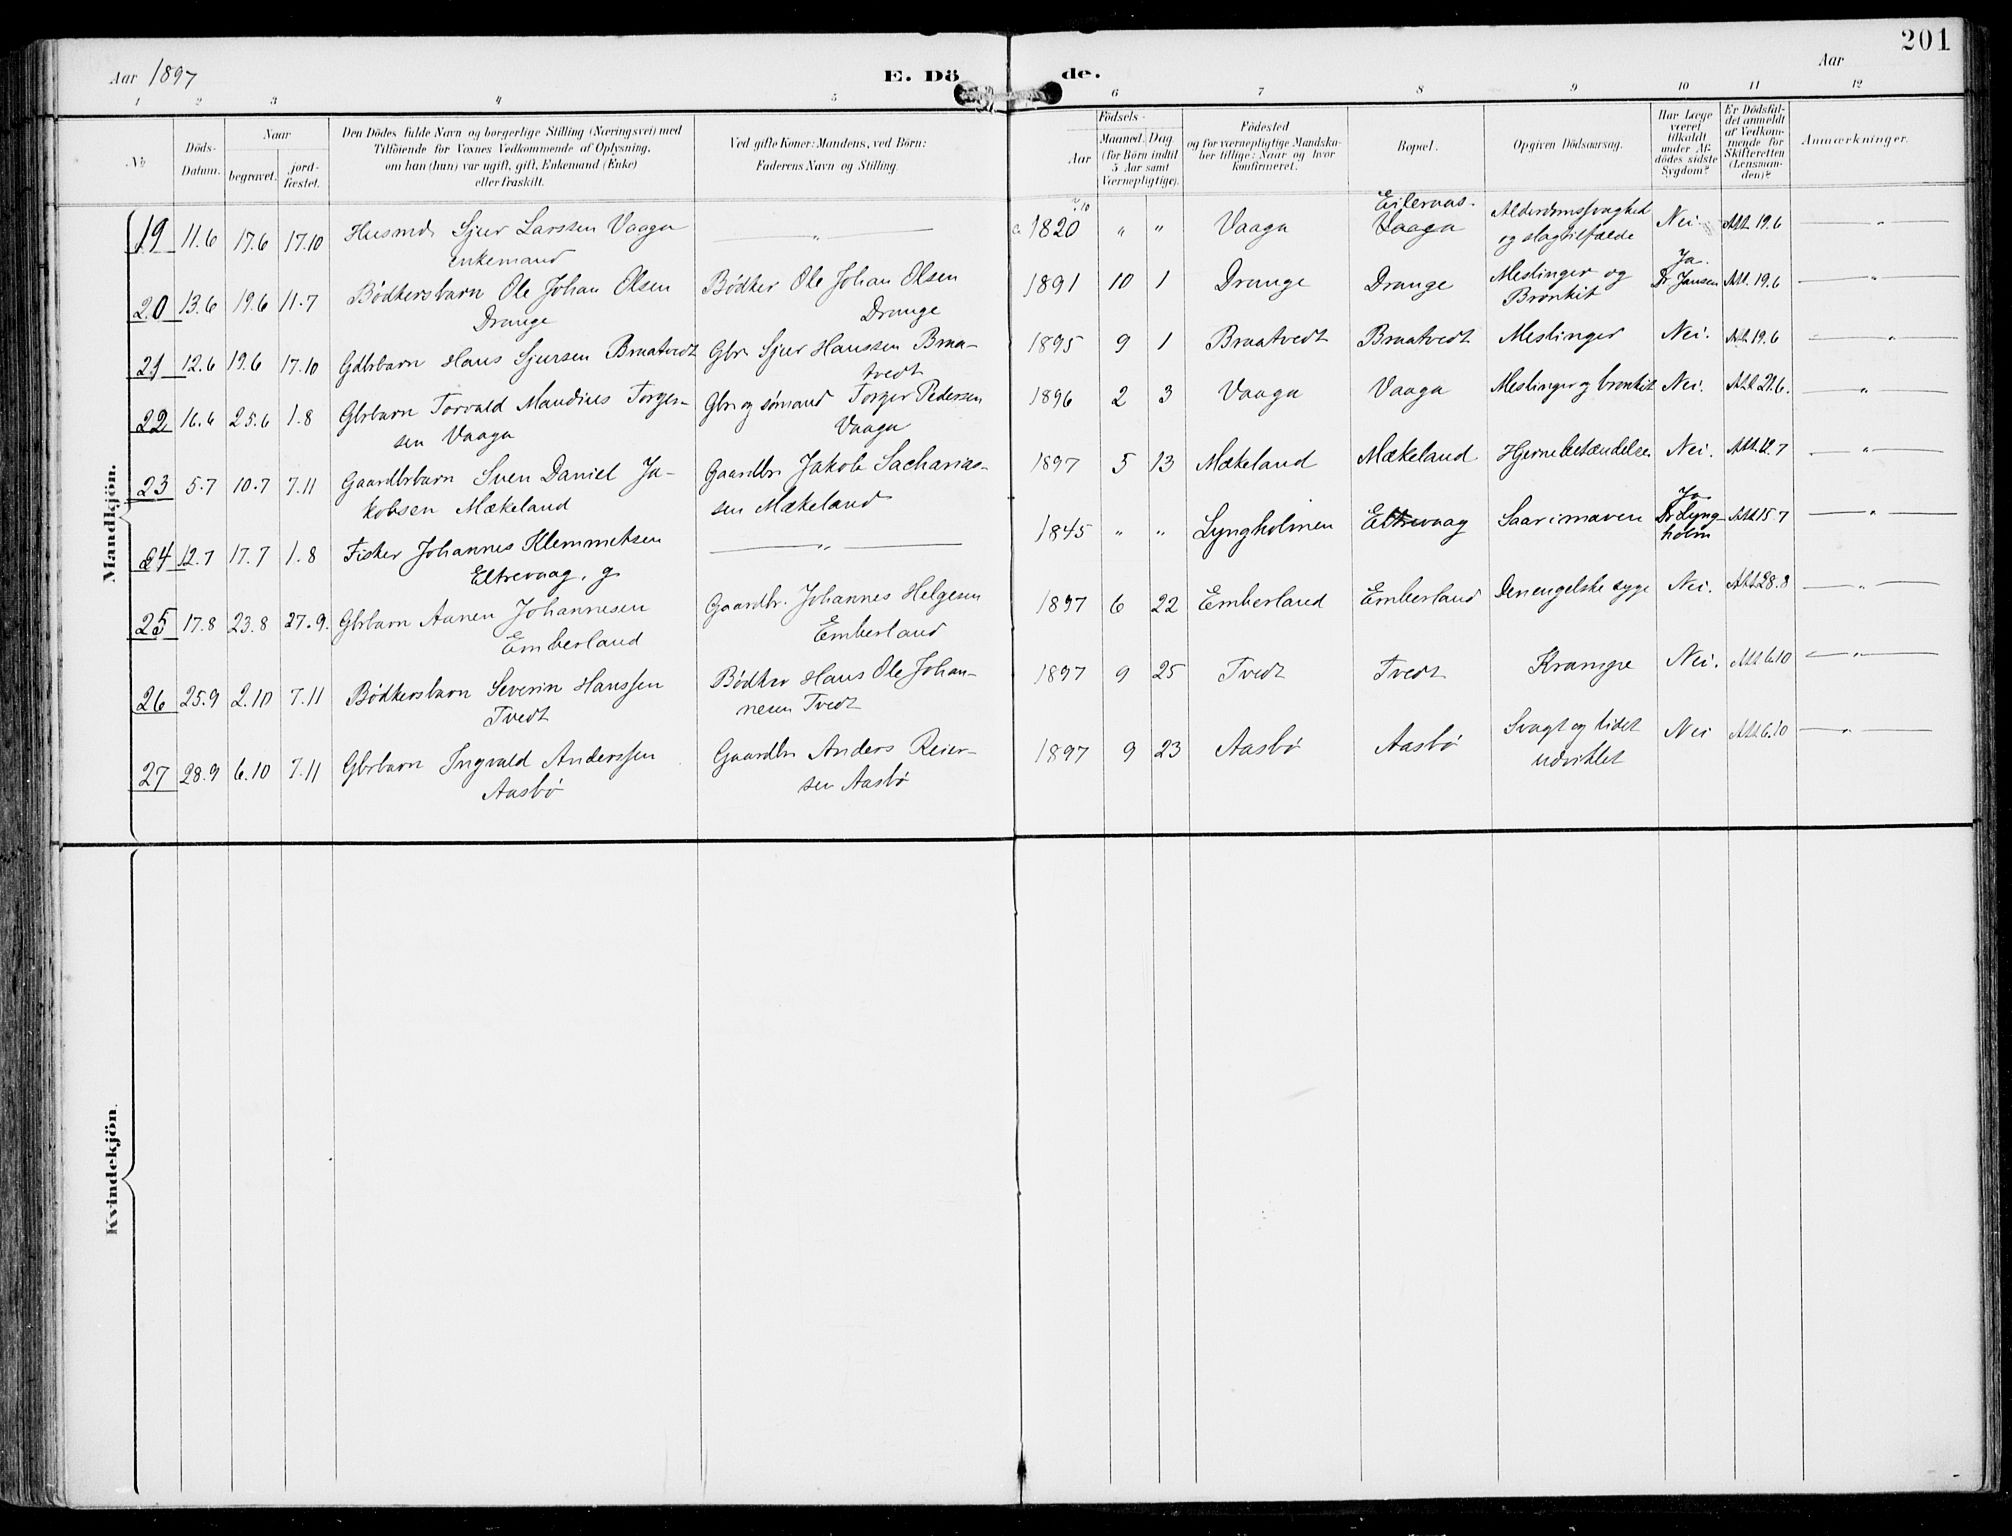 201
Aar 1897
E. Dö de.
Aar
1 2 3 4 5 6 7 8 9 10 11 12
No
Döds-Datum.
Naar
begravet.
jord-fæstet.
Den Dödes fulde Navn og borgerlige Stilling (Næringsvei) med
Tilföiende for Voxnes Vedkommende af Oplysning,
om han (hun) var ugift, gift, Enkemand (Enke)
eller fraskilt.
Ved gifte Koner: Mandens, ved Börn:
Faderens Navn og Stilling.
Födsels-
Aar
Maaned. Dag
(for Börn indtil
5 Aar samt
Værnepligtige).
Födested
og for værnepligtige Mandska-
ber tillige: Naar og hvor
konfirmeret.
Bopæl.
Opgiven Dödsaarsag.
Har Læge
været
tilkaldt
under Af-
dödes sidste
Sygdom?
Er Dödsfal-
det anmeldt
af Vedkom-
mende for
Skifteretten
(Lensman-
den)?
Anmærkninger.
Mandkjön.
19 11.6 17.6 17.10 Husmd. Sjur Larssen Vaaga
enkemand
" 1820 " " Vaaga Eilernaas-
Vaaga
Alderdomssvaghed
og slagtilfælde
Nei. Att. 19.6 "
20 13.6 19.6 11.7 Bödkersbarn Ole Johan Olsen
Drange
Bödker Ole Johan Olsen
Drange
1891 10 1 Drange Drange Meslinger og
Bronkit
Ja.
Dr Jansen
Att. 19.6 "
21 12.6 19.6 17.10 Gdbrbarn Hans Sjursen Braatvedt
Gbr Sjur Hanssen Braa-
tvedt
1895 9 1 Braatvedt Braatvedt Meslinger Nei. Att. 19.6 "
22 16.6 25.6 1.8 Gbrbarn Torvald Mandius Torger-
sen Vaaga
Gbr og sømand Torger Pedersen
Vaaga
1896 2 3 Vaaga Vaaga Meslinger og bronkit Nei. Att. 21.6. "
23 5.7 10.7 7.11 Gaardbrbarn Sven Daniel Ja-
kobsen Mækeland
Gaardbr Jakob Sacharias-
sen Mækeland
1897 5 13 Mækeland Mækeland Hjernebetændelse Nei. Att. 12.7 "
24 12.7 17.7 1.8 Fisker Johannes Klemmetsen
Eltrevaag, g.
" 1845 " " Lyngholmen Eltrevaag Saar i maven Ja
Dr Lyng-
holm
Att. 15.7 "
25 17.8 23.8 27.9. Gbrbarn Aanen Johannesen
Emberland
Gaardbr. Johannes Helgesen
Emberland
1897 6 22 Emberland Emberland Den engelske syge Nei. Att. 28.8 "
26 25.9 2.10 7.11 Bödkersbarn Severin Hanssen
Tvedt
Bødker Hans Ole Johan-
nesen Tvedt
1897 9 25 Tvedt Tvedt Krampe Nei. Att 6.10 "
27 28.9 6.10 7.11 Gbrbarn Ingvald Anderssen
Aasbö
Gaardbr Anders Reier-
sen Aasbö
1897 9 23 Aasbö Aasbö Svagt og lidet
udviklet
Nei Att 6.10 "
Kvindekjön.